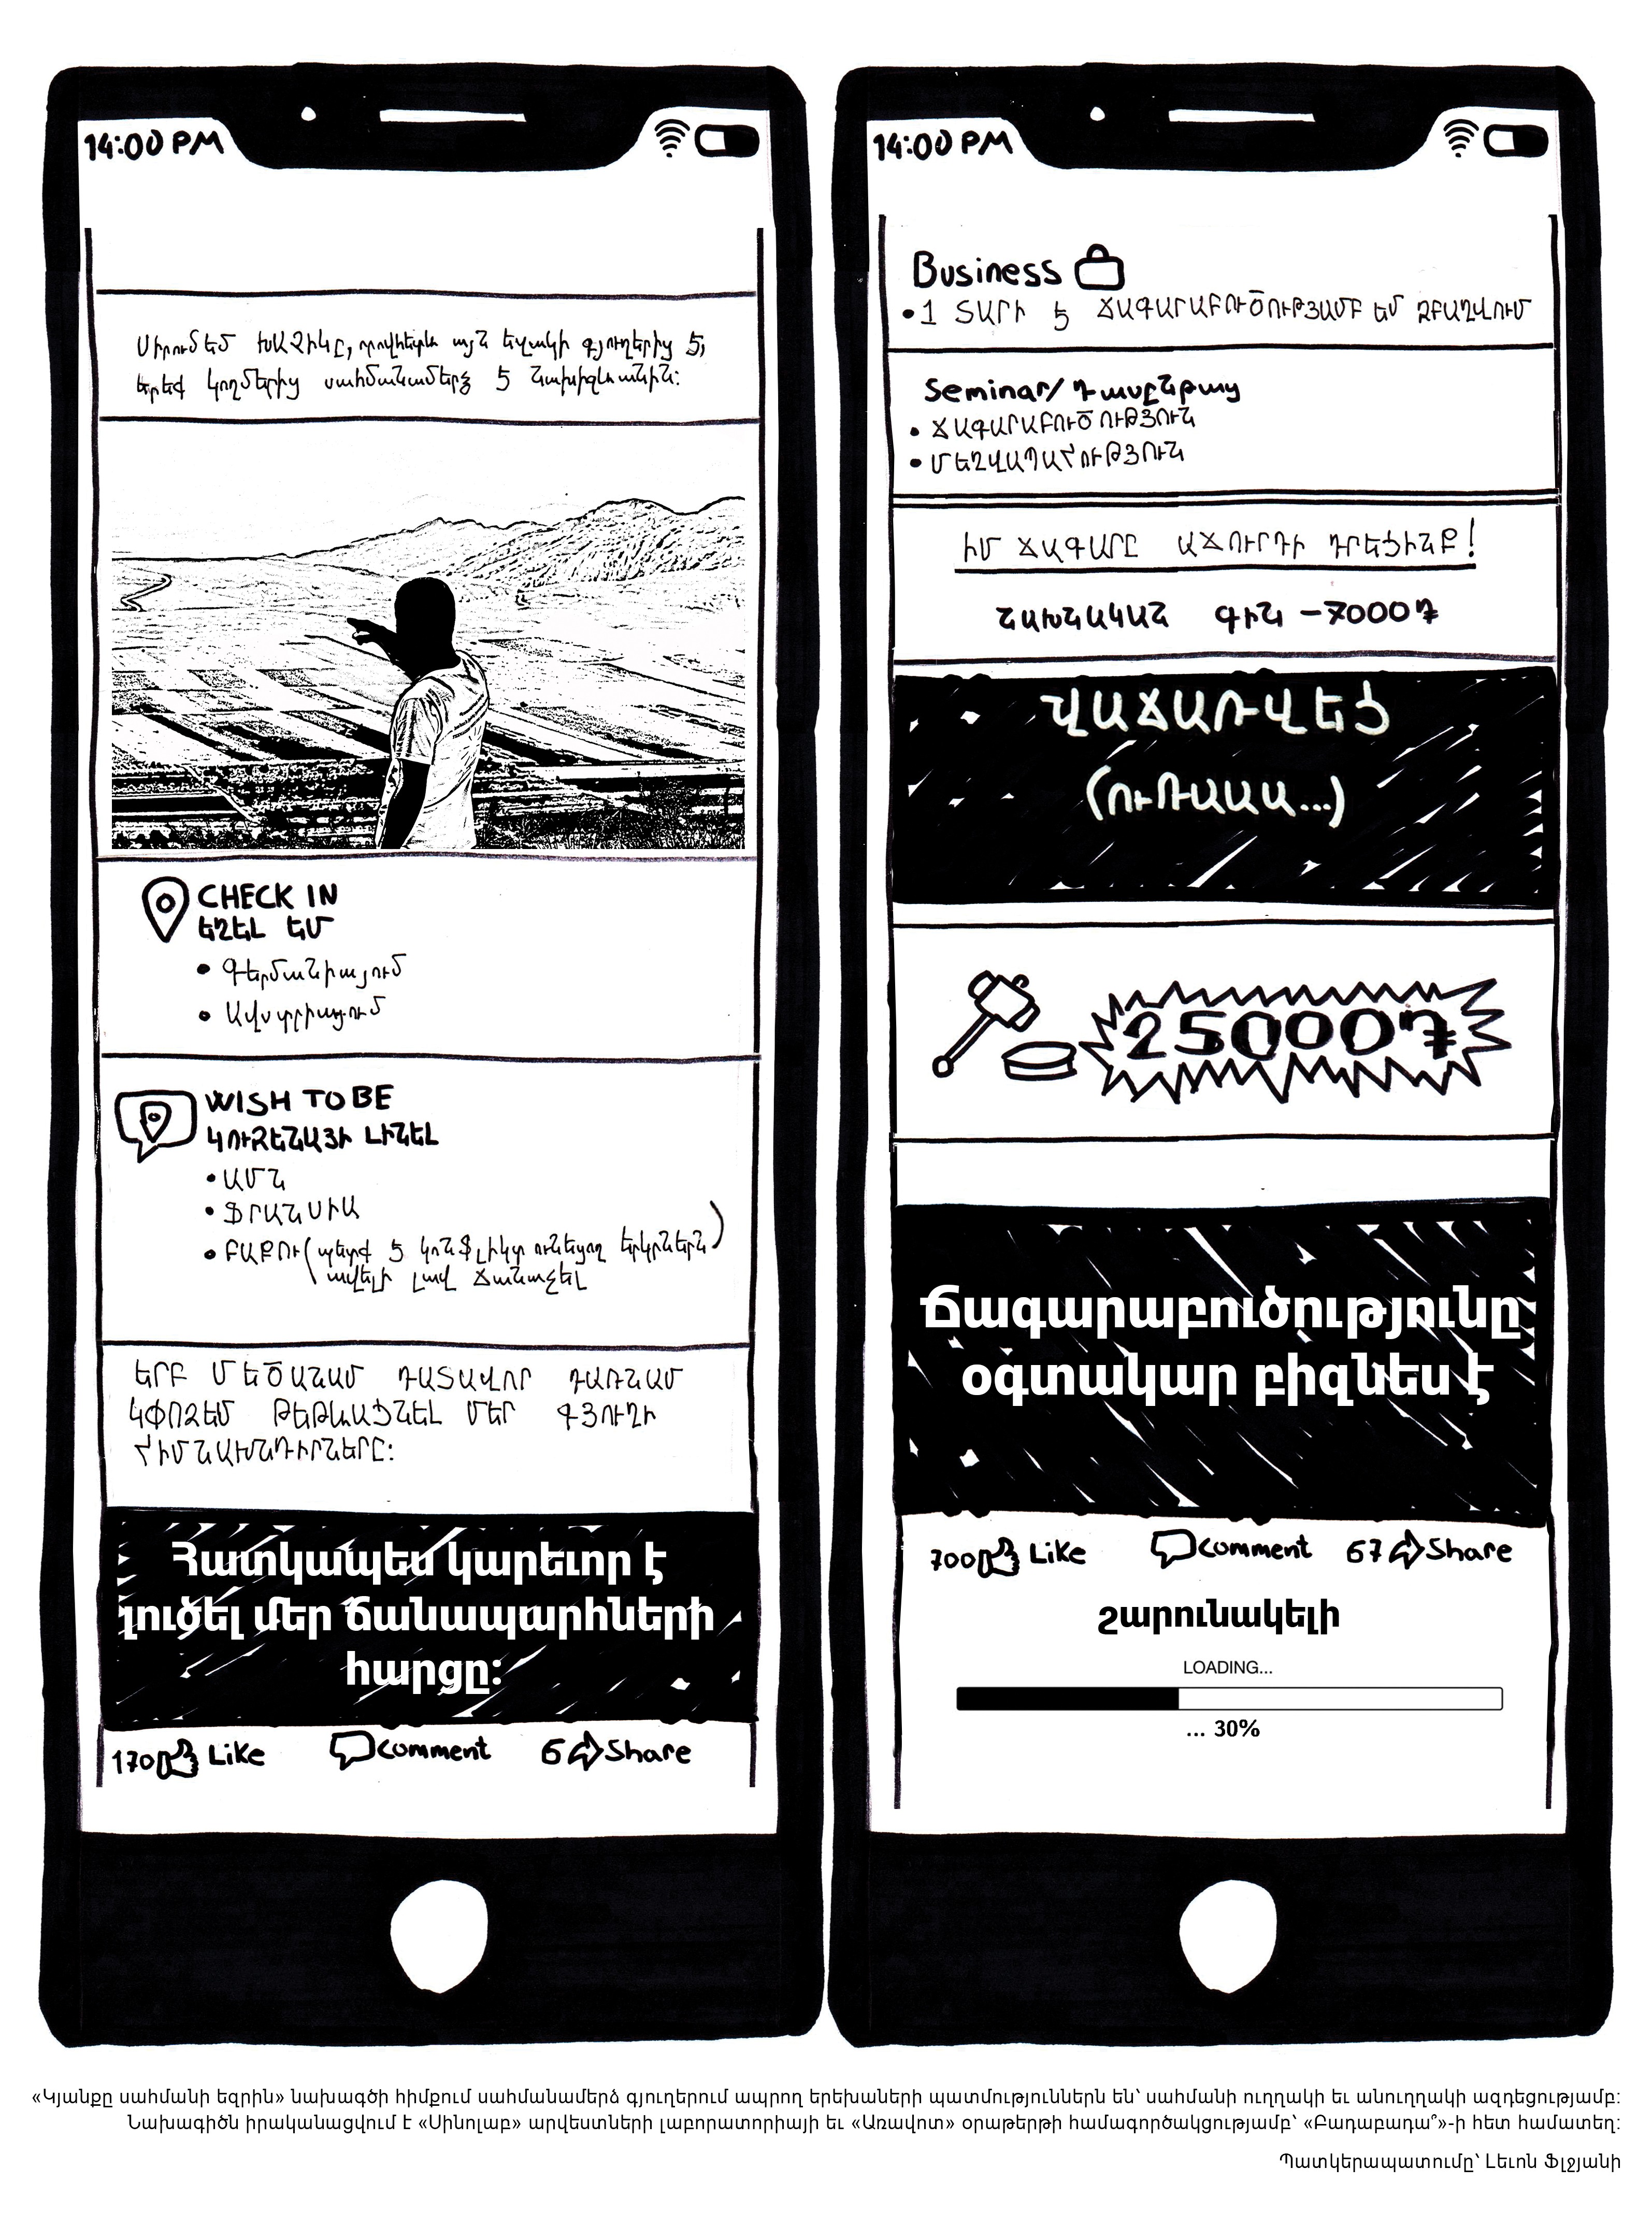 14:00 PM
Սիրում եմ ԽԱՉԻԿԸ, որովհետև այն եզակի գյուղերից է,
երեք կողմերից սահմանամերձ է Նախիջևանին:
CHECK IN
ԵՂԵԼ ԵՄ
• Գերմանիայում
• Ավստրիայում
WISH TO BE
ԿՈՒԶԵՆԱՅԻ ԼԻՆԵԼ
• ԱՄՆ
• ՖՐԱՆՍԻԱ
• ԲԱՔՈՒ (պետք է կոնֆլիկտ ունեցող երկրներն
ավելի լավ ճանաչել)
ԵՐԲ ՄԵԾԱՆԱՄ ԴԱՏԱՎՈՐ ԴԱՌՆԱՄ
ԿՓՈՁԵՄ ԹԵԹևԱՑՆԵԼ ՄԵՐ ԳՅՈՒՂԻ
ՀԻՄՆԱԽՆԴԻՐՆԵՐԸ:
Հատկապես կարեւոր է
լուծել մեր ճանապարհների
հարցը:
170 Like Comment 6 Share
14:00 PM
Business
• 1 ՏԱՐԻ է ՃԱԳԱՐԱԲՈՒԾՈՒԹՅԱՄԲ ԵՄ ԶԲԱՂՎՈՒՄ
Seminar/ Դասընթաց
• ՃԱԳԱՐԱԲՈՒԾՈՒԹՅՈՒՆ
• ՄԵՂՎԱՊԱՀՈՒԹՅՈՒՆ
ԻՄ ՃԱԳԱՐԸ ԱՃՈՒՐԴԻ ԴՐԵՑԻՆՔ!
ՆԱԽՆԱԿԱՆ ԳԻՆ – 7000֏
ՎԱՃԱՌՎԵՑ
(ՈՒՌԱԱԱ...)
25000֏
Ճագարաբուծությունը
օգտակար բիզնես է
700 Like Comment 67 Share
շարունակելի
LOADING...
... 30%
«Կյանքը սահմանի եզրին» նախագծի հիմքում սահմանամերձ գյուղերում ապրող երեխաների պատմություններն են՝ սահմանի ուղղակի եւ անուղղակի ազդեցությամբ:
Նախագիծն իրականացվում է «Սինոլաբ» արվեստների լաբորատորիայի եւ «Առավոտ» օրաթերթի համագործակցությամբ՝ «Բադաբադա՞»-ի հետ համատեղ:
Պատկերապատումը՝ Լեւոն Ֆլջյանի